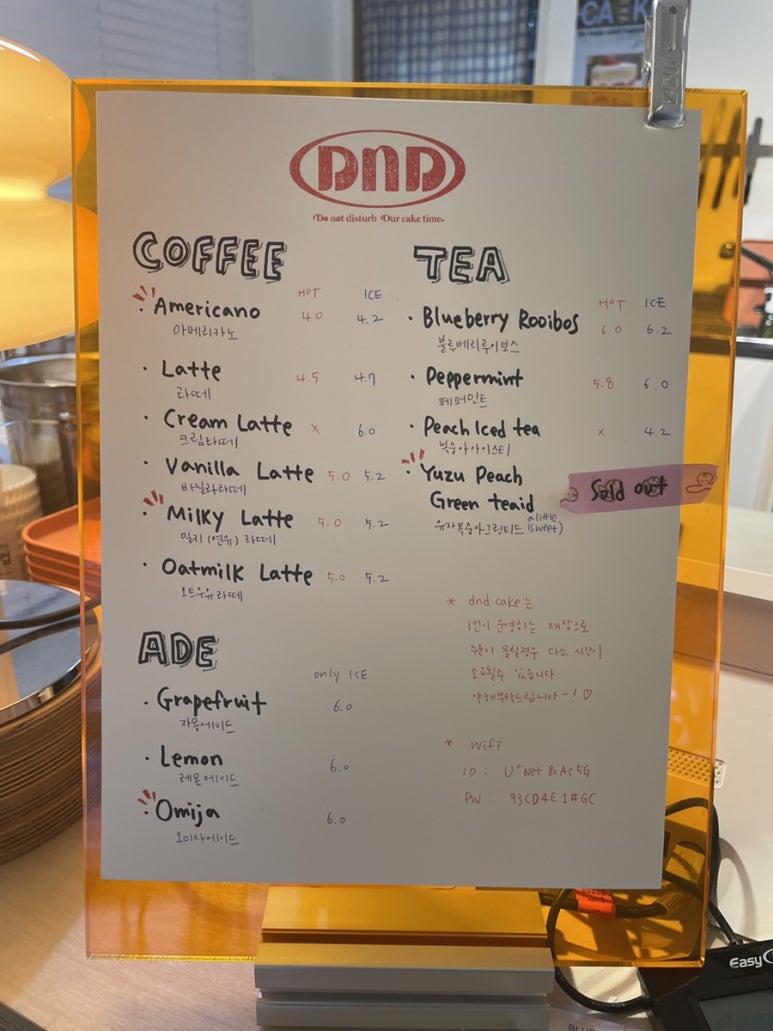 DND
Do not disturb Our cake time.
COFFEE
HOT ICE
Americano 4.0 4.2
아메리카노
Latte 4.5 4.7
라떼
Cream Latte x 6.0
크림라떼
Vanilla Latte 5.0 5.2
바닐라라떼
Milky Latte 5.0 5.2
밀키(연유)라떼
Oatmilk Latte 5.0 5.2
오트우유라떼
ADE
only ICE
Grapefruit 6.0
자몽에이드
Lemon 6.0
레몬에이드
Omija 6.0
오미자에이드
TEA
HOT ICE
Blueberry Rooibos 6.0 6.2
블루베리루이보스
Peppermint 5.8 6.0
페퍼민트
Peach Iced tea x 4.2
복숭아아이스티
Yuzu Peach
Green teaid
Sold out
유자복숭아그린티드 (a little sweet)
* dnd cake는
1인이 운영하는 매장으로
주문이 몰릴경우 다소 시간이
소요될수 있습니다
양해부탁드립니다~! ♡
* wifi
ID : U+Net80AC5G
PW : 93CD4E1#GC
CAKE
Easy